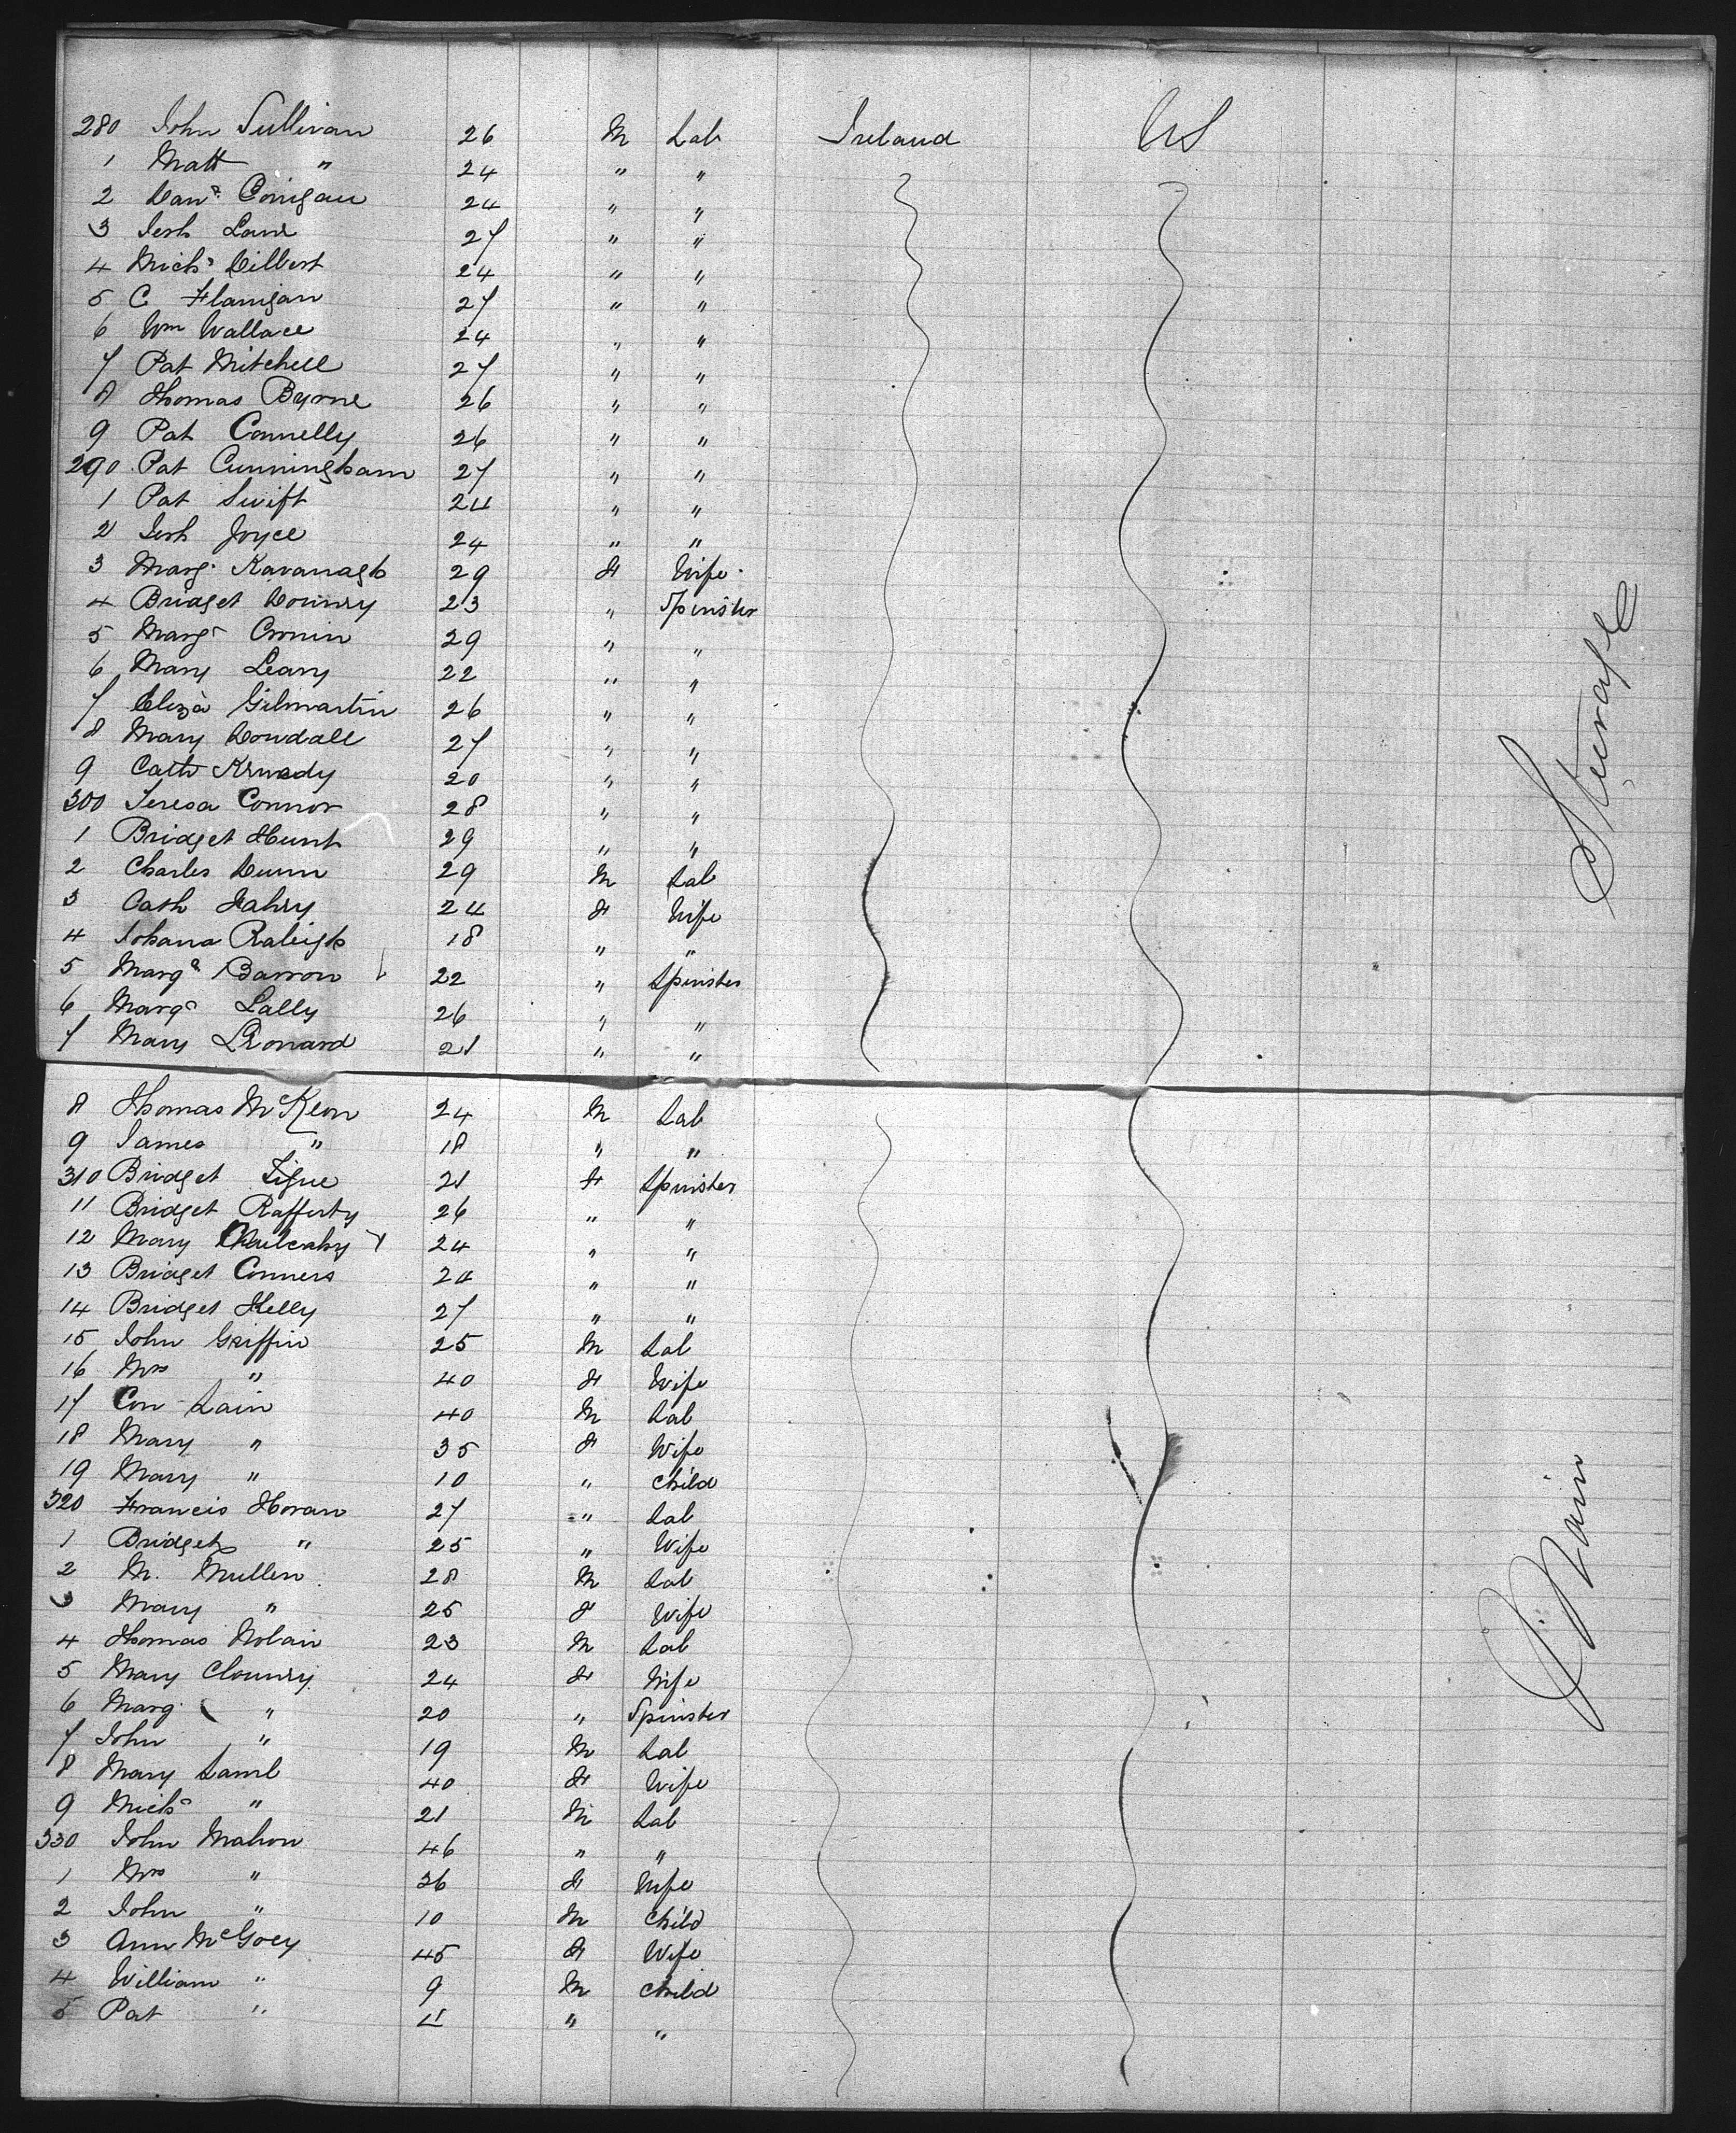 280 John Sullivan 26 M Lab Ireland US
1 Matt " 24 " "
2 Danl Corrigan 24 " "
3 Jerh Lane 27 " "
4 Michl Dilbert 24 " "
5 C Flanigan 27 " "
6 Wm Wallace 24 " "
7 Pat Mitchell 27 " "
8 Thomas Byrne 26 " "
9 Pat Connelly 26 " "
290 Pat Cunningham 27 " "
1 Pat Swift 24 " "
2 Jerh Joyce 24 " "
3 Marg. Kavanagh 29 F Wife
4 Bridget Downey 23 " Spinster
5 Margt Cronin 29 " "
6 Mary Leary 22 " "
7 Eliza Gilmartin 26 " "
8 Mary Dowdall 27 " "
9 Cath Kennedy 20 " "
300 Teresa Connor 28 " "
1 Bridget Hunt 29 " "
2 Charles Dunn 29 M Lab
3 Cath Fahey 24 F Wife
4 Johana Raleigh 18 " "
5 Margt Barron 22 " Spinster
6 Margt Lally 26 " "
7 Mary Leonard 21 " "
8 Thomas McKeon 24 M Lab
9 James " 18 " "
310 Bridget Tigue 21 F Spinster
11 Bridget Rafferty 26 " "
12 Mary Mulcahy 24 " "
13 Bridget Conners 24 " "
14 Bridget Kelly 27 " "
15 John Griffin 25 M Lab
16 Mrs " 40 F Wife
17 Con Lain 40 M Lab
18 Mary " 35 F Wife
19 Mary " 10 " Child
320 Francis Horan 27 " Lab
1 Bridget " 25 " Wife
2 M. Mullen 28 M Lab
3 Mary " 25 F Wife
4 Thomas Nolan 23 M Lab
5 Mary Clounry 24 F Wife
6 Marg. " 20 " Spinster
7 John " 19 M Lab
8 Mary Lamb 40 F Wife
9 Michl " 21 M Lab
330 John Mahon 46 " "
1 Mrs " 36 F Wife
2 John " 10 M Child
3 Ann McGoey 45 F Wife
4 William " 9 M Child
5 Pat " 11 " "
Steerage
Main